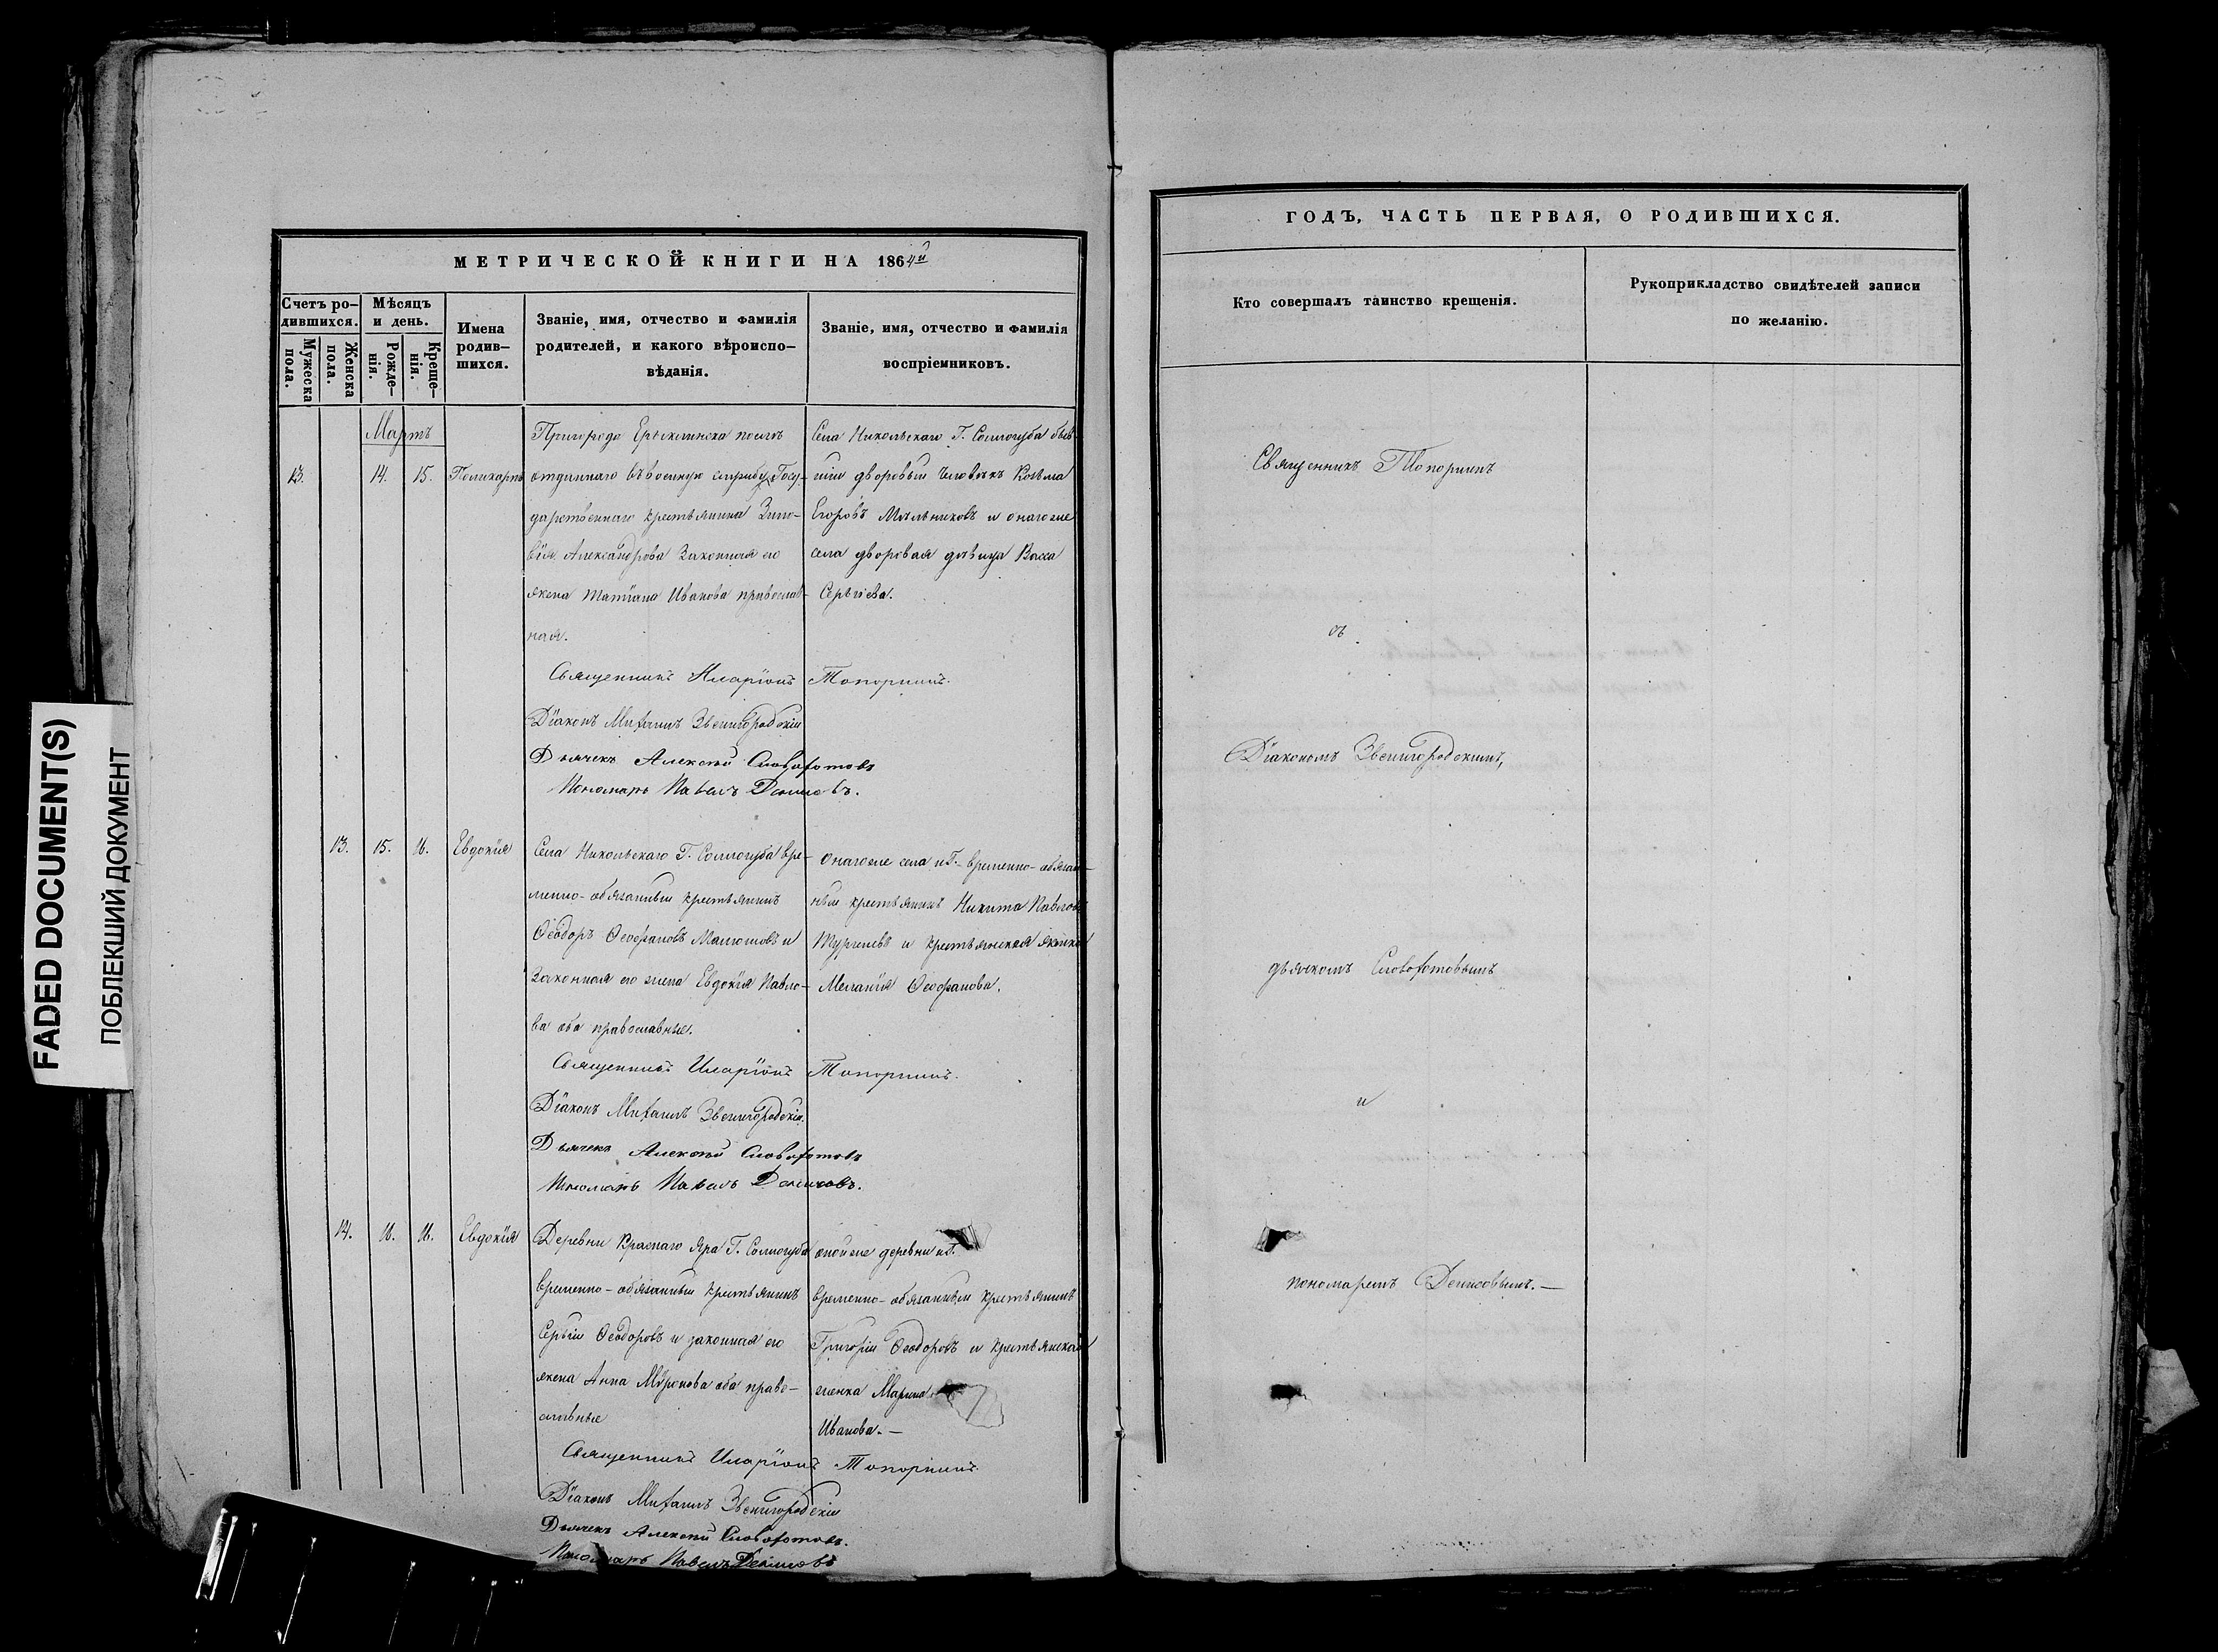 FADED DOCUMENT(S)
ПОБЛЕКШИЙ ДОКУМЕНТ
МЕТРИЧЕСКОЙ КНИГИ НА 1864й
Счетъ ро-
дившихся.
Мужеска
пола.
Женска
пола.
Мѣсяцъ
и день.
Рожде-
нія.
Креще-
нія.
Имена
родив-
шихся.
Званіе, имя, отчество и фамилія
родителей, и какого вѣроиспо-
вѣданія.
Званіе, имя, отчество и фамилія
воспріемниковъ.
Мартъ
13. 14. 15. Поликарпъ
Пригорода Ерыклинска послѣ
отданнаго въ военную службу Госу-
дарственнаго крестьянина Зино-
вія Александрова Законная его
жена Татіана Иванова православ-
ная.
Села Никольскаго Г. Соллогуба быв-
шій дворовый человѣкъ Козьма
Егоровъ Мельниковъ и онагоже
села дворовая дѣвица Васса
Сергіева.
Священникъ Иларіонъ Топорнинъ.
Діаконъ Михаилъ Звенигородскій
Дьячекъ Алексѣй Словохотовъ
Пономарь Павелъ Денисовъ.
13. 15. 16. Евдокія
Села Никольскаго Г. Соллогуба вре-
менно-обязанный крестьянинъ
Ѳеодоръ Ѳеофановъ и
Законная его жена Евдокія Павло-
ва оба православные.
Онагоже села и Г. временно-обязан-
ный крестьянинъ Никита Павловъ
и крестьянская женка
Меланія Ѳеофанова.
Священникъ Иларіонъ Топорнинъ.
Діаконъ Михаилъ Звенигородскій.
Дьячекъ Алексѣй Словохотовъ
Пономарь Павелъ Денисовъ.
14. 16. 16. Евдокія
Деревни Краснаго Яра Г. Соллогуба
временно-обязанный крестьянинъ
Сергій Ѳеодоровъ и законная его
жена Анна Мѵронова оба право-
славные
оной же деревни и Г.
временно-обязанный крестьянинъ
Григорій Ѳеодоровъ и крестьянская
женка Марина
Иванова.—
Священникъ Иларіонъ Топорнинъ.
Діаконъ Михаилъ Звенигородскій
Дьячекъ Алексѣй Словохотовъ.
Пономарь Павелъ Денисовъ
ГОДЪ, ЧАСТЬ ПЕРВАЯ, О РОДИВШИХСЯ.
Кто совершалъ таинство крещенія.
Рукоприкладство свидѣтелей записи
по желанію.
Священникъ Топорнинъ
съ
Діакономъ Звенигородскимъ,
дьячкомъ Словохотовымъ
и
пономаремъ Денисовымъ.—